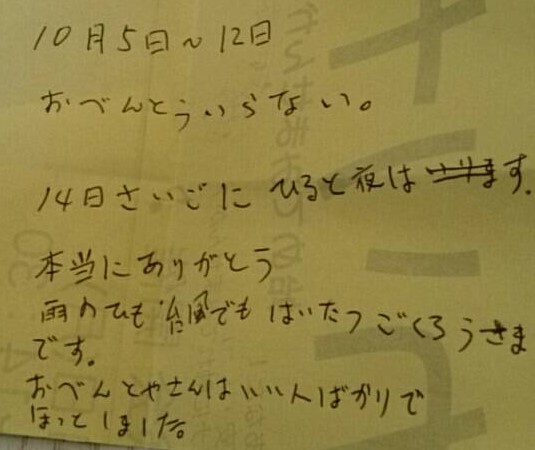 10月5日〜12日
おべんとういらない。
14日さいごに ひると夜は す.
本当にありがとう
雨のひも 台風でも はいたつ ごくろうさま
です。
おべんとやさんはいい人ばかりで
ほっとしました。